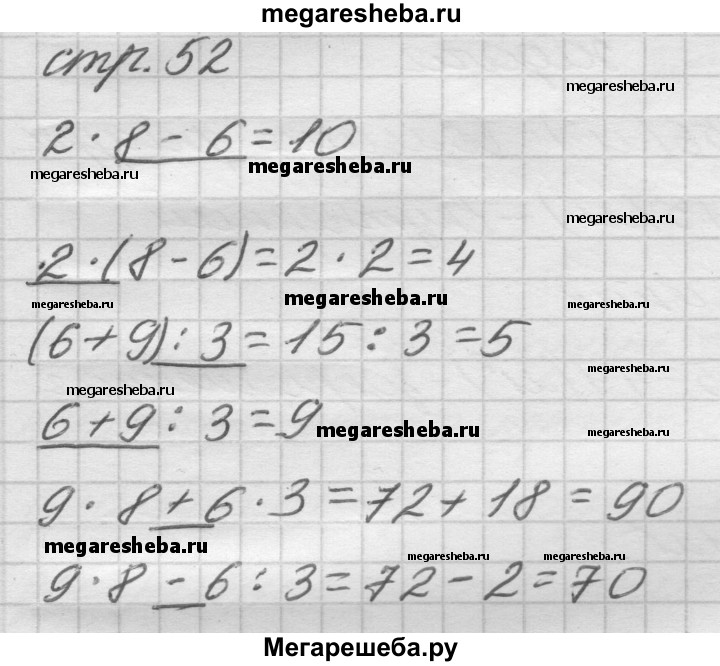 megaresheba.ru
стр. 52
megaresheba.ru
2 · 8 - 6 = 10
megaresheba.ru megaresheba.ru
megaresheba.ru
·2 · (8 - 6) = 2 · 2 = 4
megaresheba.ru megaresheba.ru megaresheba.ru
(6 + 9) : 3 = 15 : 3 = 5
megaresheba.ru
megaresheba.ru
6 + 9 : 3 = 9
megaresheba.ru megaresheba.ru
9 · 8 + 6 · 3 = 72 + 18 = 90
megaresheba.ru megaresheba.ru megaresheba.ru
9 · 8 - 6 : 3 = 72 - 2 = 70
Мегарешеба.ру